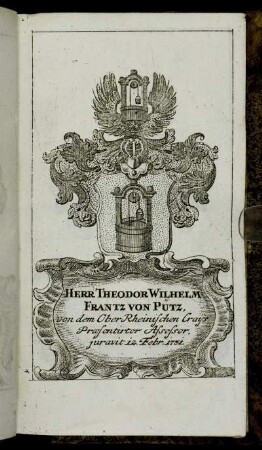 HERR THEODOR WILHELM
FRANTZ VON PÜTZ,
von dem Ober Rheinischen Crays
Præsentirter Assessor,
juravit 12 Febr. 1751.